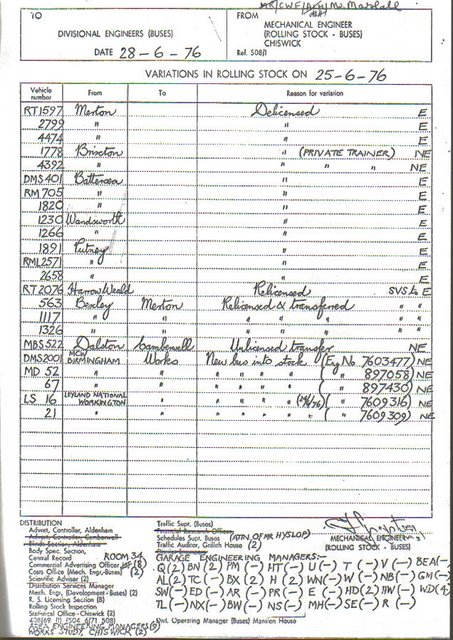 TO
DIVISIONAL ENGINEERS (BUSES)
DATE 28-6-76
FROM
MECHANICAL ENGINEER
(ROLLING STOCK - BUSES)
CHISWICK
Ref. 508/1
VARIATIONS IN ROLLING STOCK ON 25-6-76
Vehicle number From To Reason for variation
RT1597 Merton Delicensed E
2799 " " E
4474 " " E
1778 Brixton " (PRIVATE TRAINER) NE
4392 " " " " NE
DMS401 Battersea " E
RM705 " " E
1820 " " E
1230 Wandsworth " E
1266 " " E
1891 Putney " E
RML2571 " " E
2658 " " E
RT2076 Harrow Weald Relicensed SVS. L E
563 Bexley Merton Relicensed & transferred
1117 " " " " "
1326 " " " " "
MBS522 Dalston Camberwell Unlicensed transfer NE
DMS2001 MCW BIRMINGHAM Works New bus into stock (Eng No 7603477) NE
MD 52 " " " " " " ( " 897058) NE
67 " " " " " " ( " 897430) NE
LS 16 LEYLAND NATIONAL WORKINGTON " " " " " ( " 7609316) NE
21 " " " " " " ( " 7609309) NE
DISTRIBUTION
Advert. Controller, Aldenham
Advert. Controller, Camberwell
Blinds Section, Aldenham
Body Spec. Section,
Central Record ROOM 34
Commercial Advertising Officer (8)
Costs Office (Mech. Engr. (Buses) (2)
Scientific Adviser (2)
Distribution Services Manager
Mech. Engr, (Development - Buses) (2)
R. S. Licensing Section (8)
Rolling Stock Inspection
Technical Office - Chiswick (2)
AREA ENGINEERING MANAGERS
WORKS STUDY, CHISWICK (2)
Traffic Supt. (Buses)
Schedules Supt. Buses (ATN. OF MR HYSLOP)
Traffic Auditor, Griffith House (2)
MECHANICAL ENGINEER
(ROLLING STOCK - BUSES)
GARAGE ENGINEERING MANAGERS:-
Q(2) BN(2) PM(-) HT(-) U(-) T(-) V(-) BEA(-)
AL(2) TC(-) BX(2) H(2) WN(-) W(-) NB(-) GM(-)
SW(-) ED(-) AR(-) PR(-) E(-) HD(2) HW(-) WD(4)
TL(-) NX(-) BW(-) NS(-) MH(-) SE(-) R(-)
Unit. Operating Manager (Buses) Mansion House